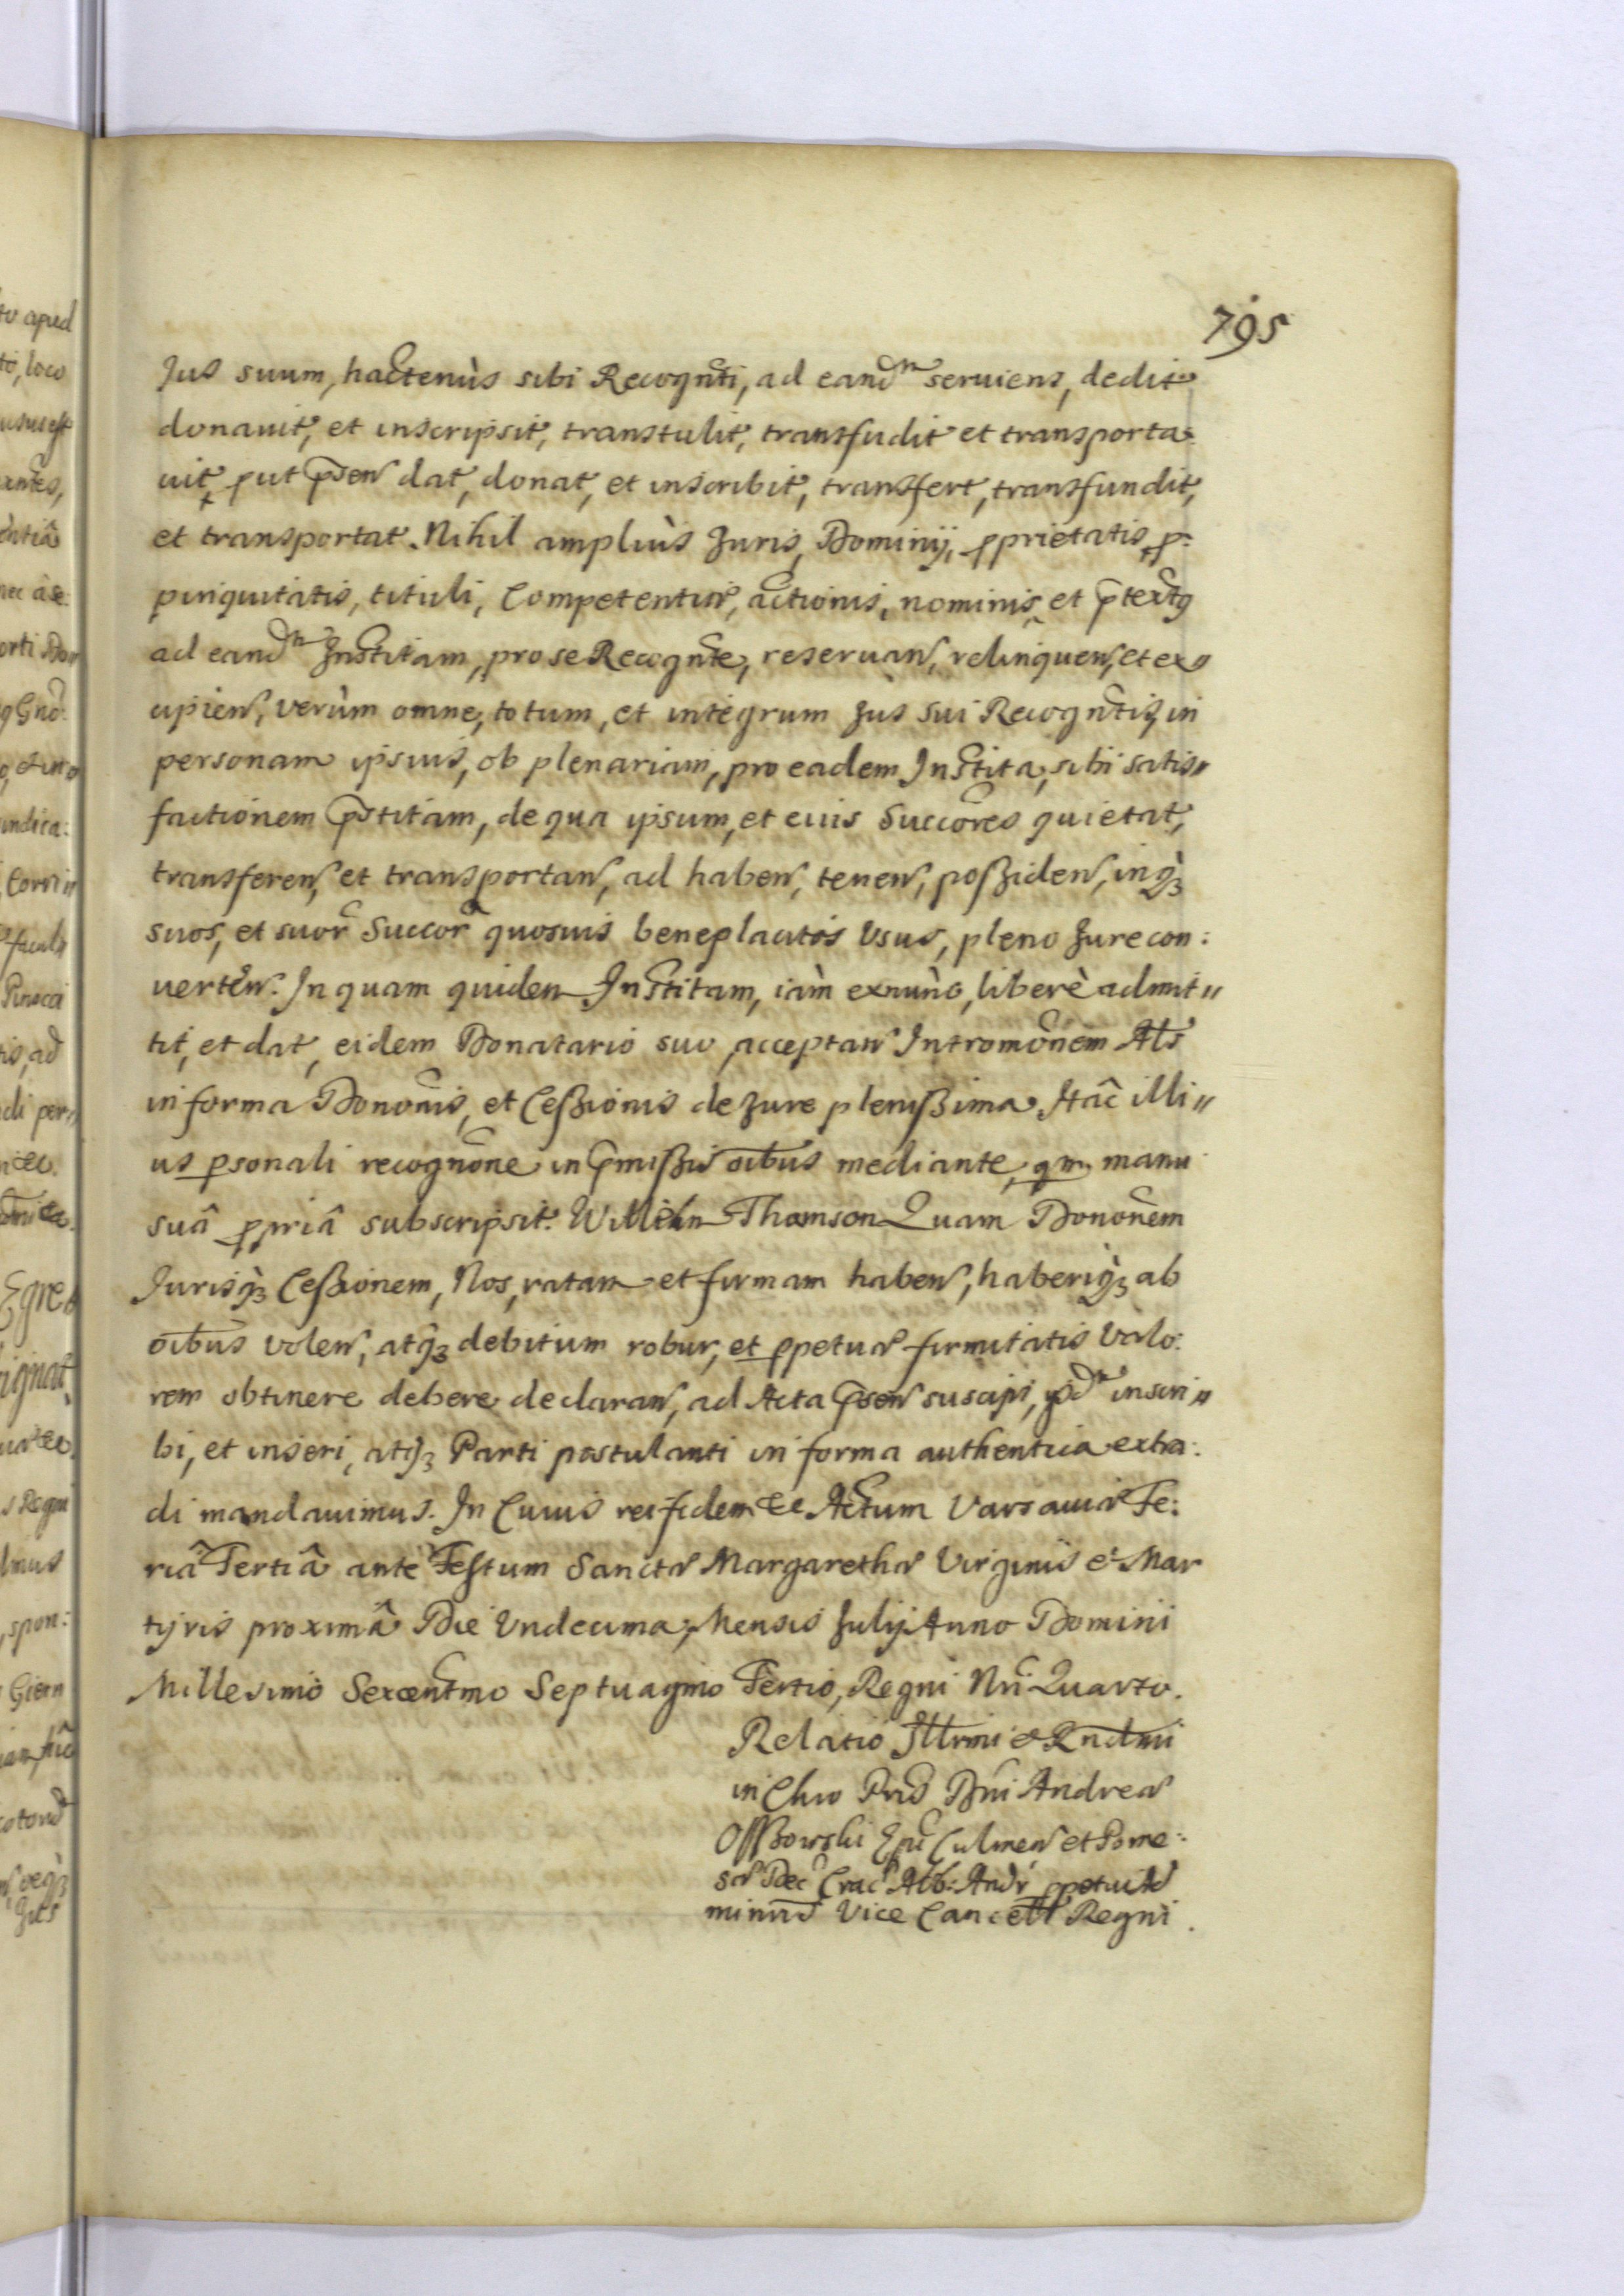 795
Jus suum, hactenùs sibi Recognti, ad eandm seruiens, dedit
donauit, et inscripsit, transtulit, transfudit et transporta:
uit, put psen dat, donat, et inscribit, transfert, transfundit,
et transportat. Nihil ampliùs Juris, Dominij, pprietatis, p:
pinquitatis, tituli, Competentiæ, actionis, nominis, et ptextq
ad eandm Institam, pro se Recognte, reseruan, relinquen, et ex
cipien, verùm omne, totum, et integrum Jus sui Recogntis, in
personam ipsius, ob plenariam, pro eadem Instita, sibi satis„
factionem pstitam, de qua ipsum, et eius Succores quietat,
transferen, et transportan, ad haben, tenen, poßiden, inq3
suos, et suor Succor quosuis beneplacitos Vsus, pleno Jure con:
uerten. In quam quidem Institam, iàm exnùnc, liberè admit„
tit, et dat, eidem Donatario suo acceptan Intromonem Als
in forma Dononis, et Ceßionis de Jure plenißima. Hac illi„
us psonali recognone in pmißis oibus mediante, qm manu
suâ ppriâ subscripsit. Willihn Thomson Quam Dononem
Jurisq3 Ceßionem, Nos, ratam et firmam haben, haberiq3 ab
oibus volen, atq3 debitum robur, et ppetuæ firmitatis Valo:
rem obtinere debere declaran, ad Acta psen suscipi, ijsdm inscri„
bi, et inseri, atq3 Parti postulanti in forma authentica extra:
di mandauimus. In Cuius rei fidem &c Actum Varsauiæ Fe:
riâ Tertiâ ante Festum Sanctæ Margarethæ Virginis et Mar
tyris proximâ Die Vndecima, Mensis Julij Anno Domini
Millesimo Sexcentmo Septuagmo Tertio, Regni Nri Quarto.
Relatio Illrmi et Rndmi
in Chro Pris Dni Andreæ
Olßowski Epi Culmen et Pome:
Dec Crac Alb: Andr ppetui Ad
minris Vice Cancell Regni.